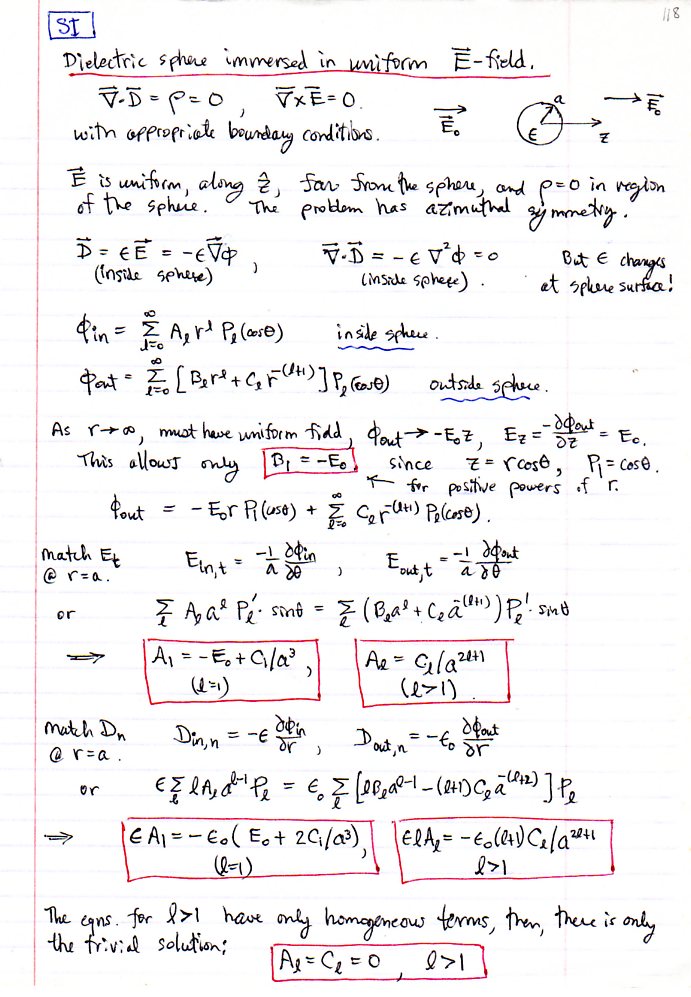 118
SI
Dielectric sphere immersed in uniform E⃗-field.
∇⃗·D⃗ = ρ = 0 , ∇⃗×E⃗ = 0.
with appropriate boundary conditions.
E⃗₀ a ϵ z E⃗₀
E⃗ is uniform, along ẑ, far from the sphere, and ρ=0 in region
of the sphere. The problem has azimuthal symmetry.
D⃗ = ϵE⃗ = -ϵ∇⃗ϕ , ∇⃗·D⃗ = -ϵ∇²ϕ = 0 But ϵ changes
(inside sphere) (inside sphere). at sphere surface!
ϕin = ∑_{l=0}^{∞} A_l r^l P_l(cosθ) inside sphere.
ϕout = ∑_{l=0}^{∞} [B_l r^l + C_l r^{-(l+1)}] P_l(cosθ) outside sphere.
As r→∞, must have uniform field, ϕout → -E₀z, E_z = -∂ϕout/∂z = E₀.
This allows only B₁ = -E₀ since z = rcosθ, P₁ = cosθ.
← for positive powers of r.
ϕout = -E₀r P₁(cosθ) + ∑_{l=0}^{∞} C_l r^{-(l+1)} P_l(cosθ).
match E_t E_{in,t} = -1/a ∂ϕin/∂θ , E_{out,t} = -1/a ∂ϕout/∂θ
@ r=a.
or ∑_l A_l a^l P_l'· sinθ = ∑_l (B_l a^l + C_l a^{-(l+1)}) P_l'· sinθ
⟹ A₁ = -E₀ + C₁/a³ , A_l = C_l/a^{2l+1}
(l=1) (l>1)
match D_n D_{in,n} = -ϵ ∂ϕin/∂r , D_{out,n} = -ϵ₀ ∂ϕout/∂r
@ r=a.
or ϵ∑_l l A_l a^{l-1} P_l = ϵ₀ ∑_l [l B_l a^{l-1} - (l+1) C_l a^{-(l+2)}] P_l
⟹ ϵA₁ = -ϵ₀(E₀ + 2C₁/a³), ϵlA_l = -ϵ₀(l+1)C_l/a^{2l+1}
(l=1) l>1
The eqns. for l>1 have only homogeneous terms, then, there is only
the trivial solution:
A_l = C_l = 0 , l>1